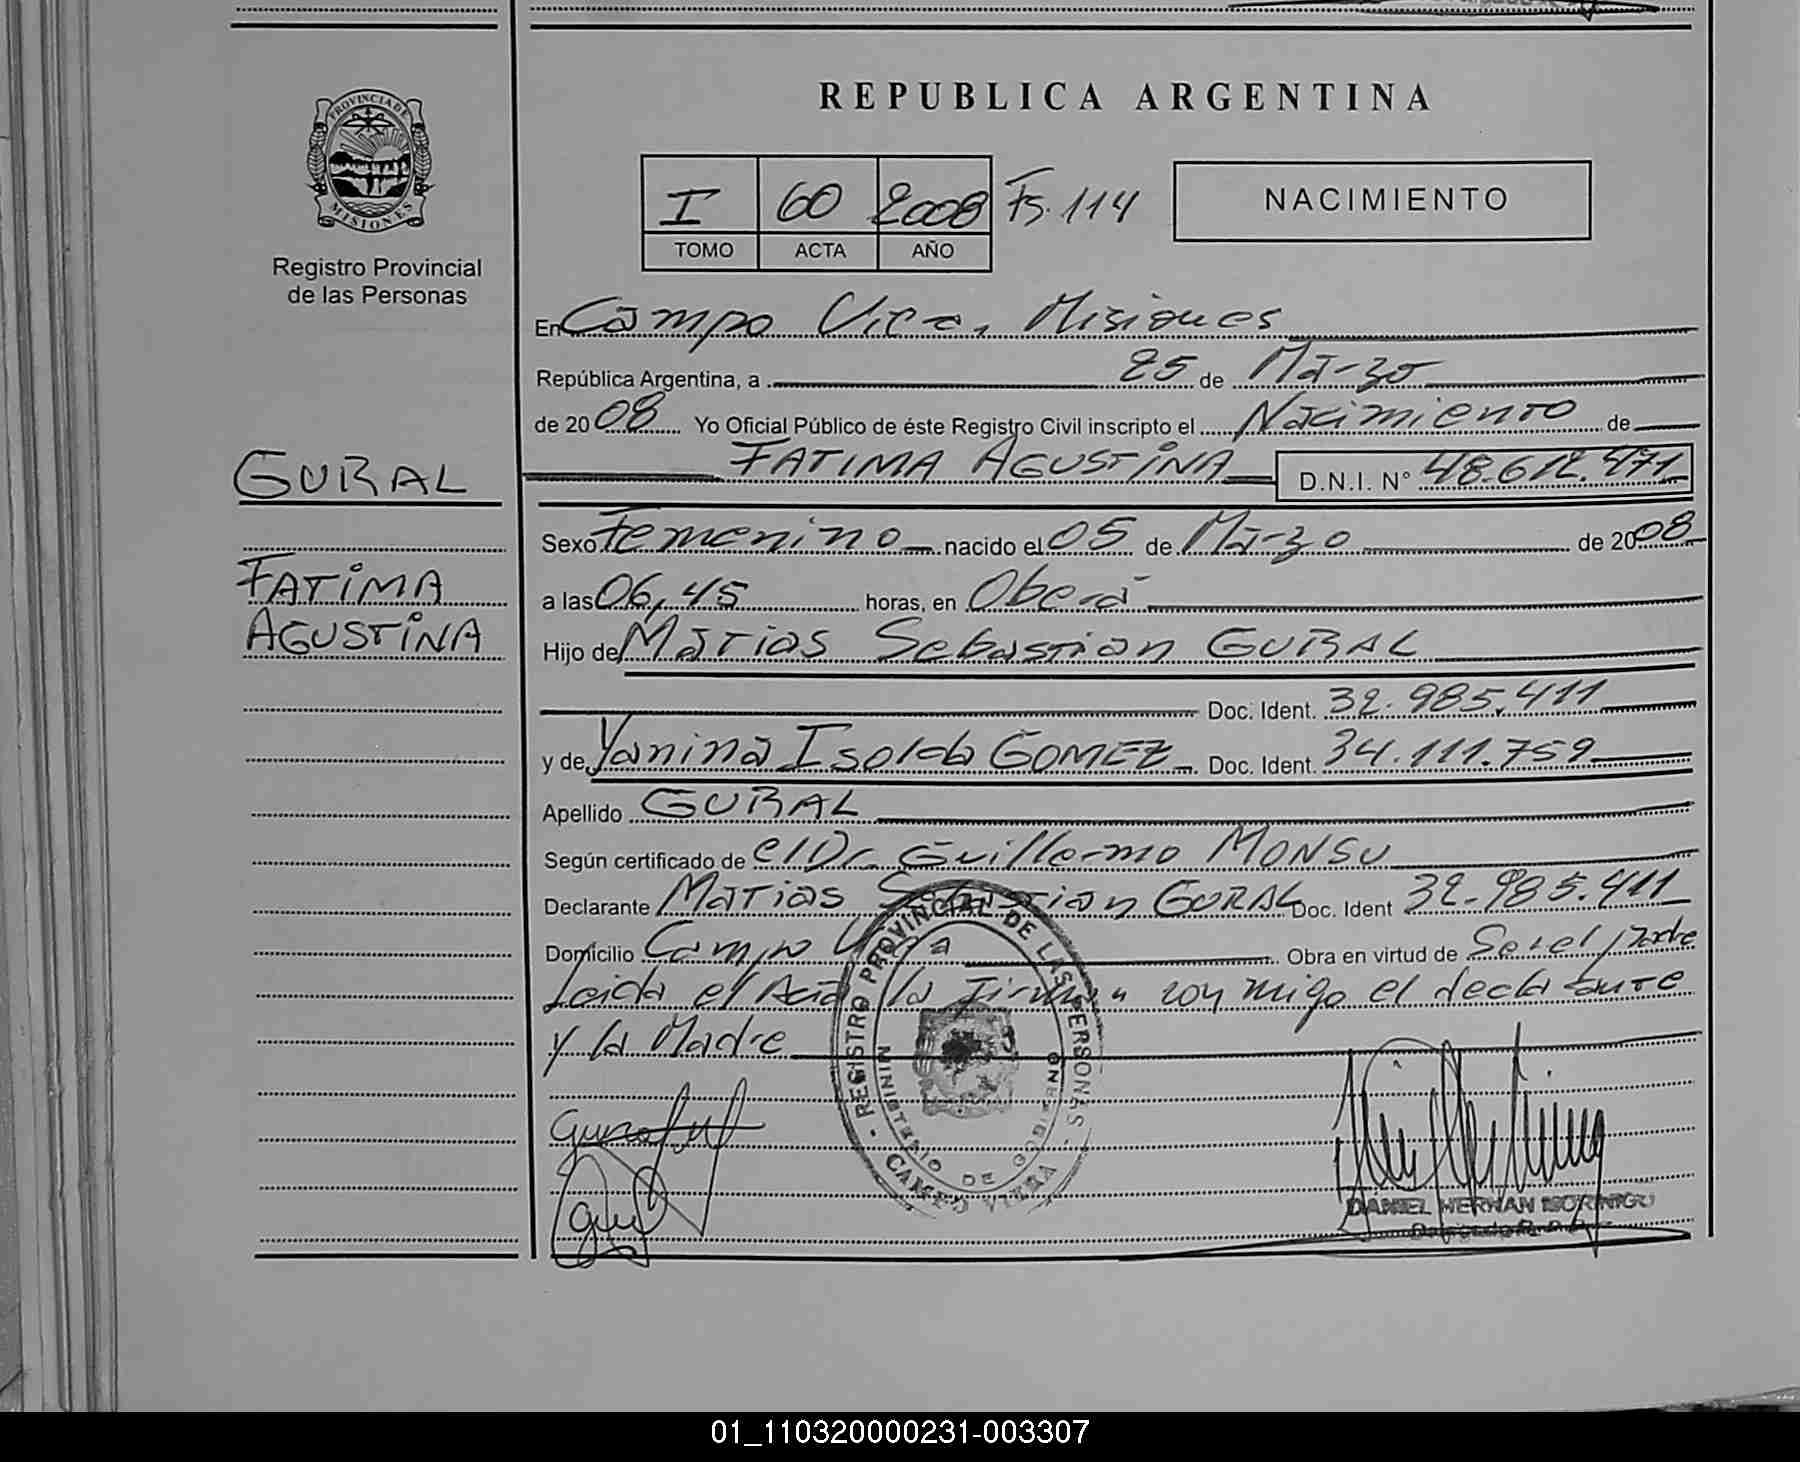 REPUBLICA ARGENTINA
PROVINCIA DE MISIONES
Registro Provincial
de las Personas
I 60 2008 Fs. 114
TOMO ACTA AÑO
NACIMIENTO
En Campo Viera, Misiones
República Argentina, a 25 de Marzo
de 2008 Yo Oficial Público de éste Registro Civil inscripto el Nacimiento de
FATIMA AGUSTINA D.N.I. N° 48.612.471
GURAL
FATIMA
AGUSTINA
Sexo Femenino nacido el 05 de Marzo de 2008
a las 06,45 horas, en Oberá
Hijo de Matias Sebastian GURAL
Doc. Ident. 32.985.411
y de Yanina Isolda GOMEZ Doc. Ident. 34.111.759
Apellido GURAL
Según certificado de el Dr. Guillermo MONSU
Declarante Matias Sebastian GURAL Doc. Ident 32.985.411
Domicilio Campo Viera Obra en virtud de Ser el padre
Leida el Acta la firman conmigo el declarante
y la Madre
REGISTRO PROVINCIAL DE LAS PERSONAS
MINISTERIO DE GOBIERNO
CAMPO VIERA
DANIEL HERNAN MORINIGO
01_110320000231-003307